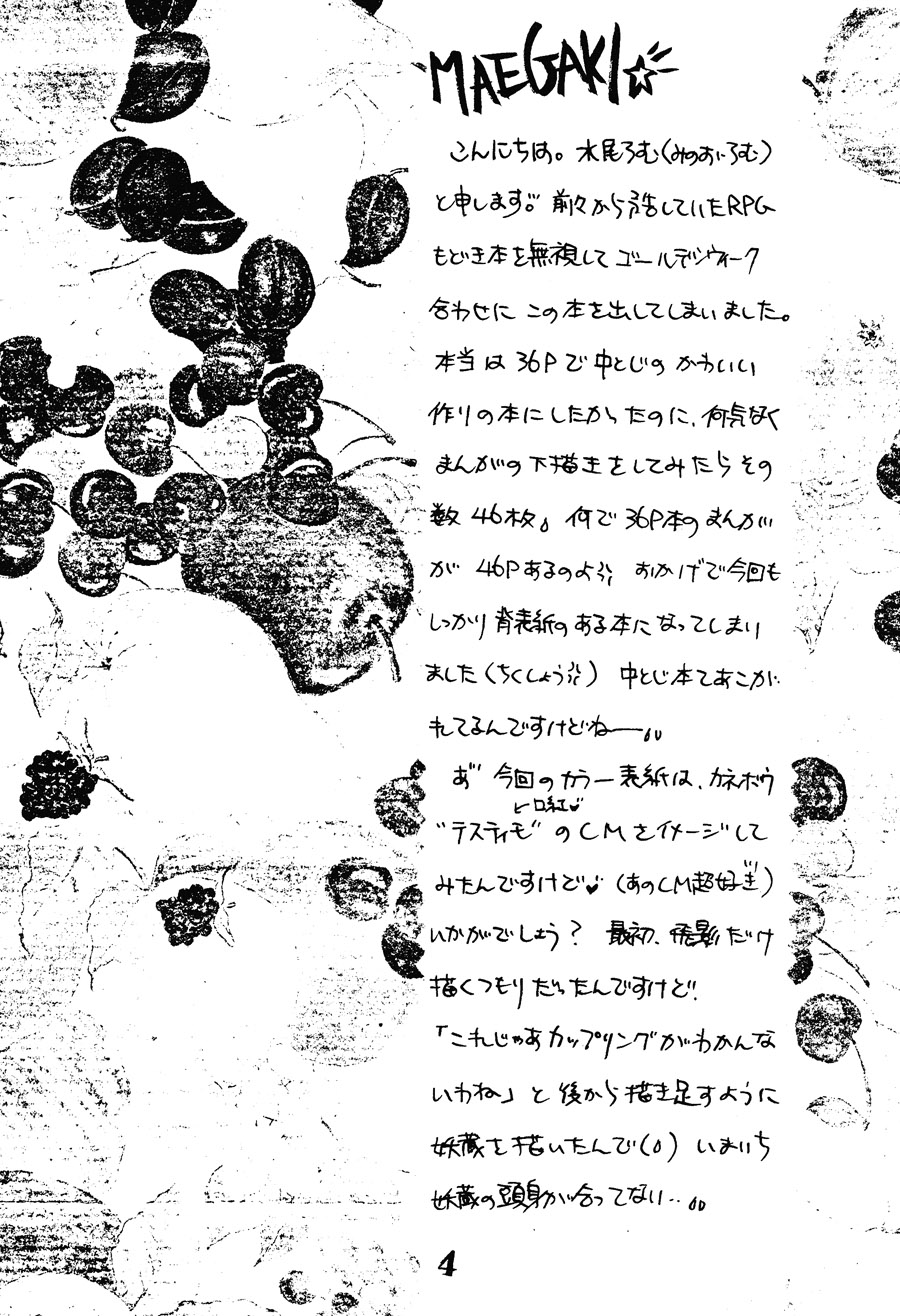 MAEGAKI☆
こんにちは。水尾ろむ(みのお・ろむ)
と申します。前々から予告していたRPG
もどき本を無視してゴールデンウィーク
合わせに この本を出してしまいました。
本当は 36Pで中とじの かわいい
作りの本にしたかったのに、何気なく
まんがの下描きをしてみたらその
数 46枚。何で36P本のまんが
が 46Pあるのよ おかげで今回も
しっかり背表紙のある本になってしまい
ました(ちくしょう) 中とじ本てあこが
れてるんですけどねー
あ" 今回のカラー表紙は、カネボウ
←口紅♥
"テスティモ"のCMをイメージして
みたんですけど♥(あのCM超好き")
いかがでしょう? 最初、飛影だけ
描くつもりだったんですけど!
「これじゃあカップリングがわかんな
いわね」と後から描き足すように
妖蔵を描いたんで いまいち
妖蔵の頭身が合ってない‥
4